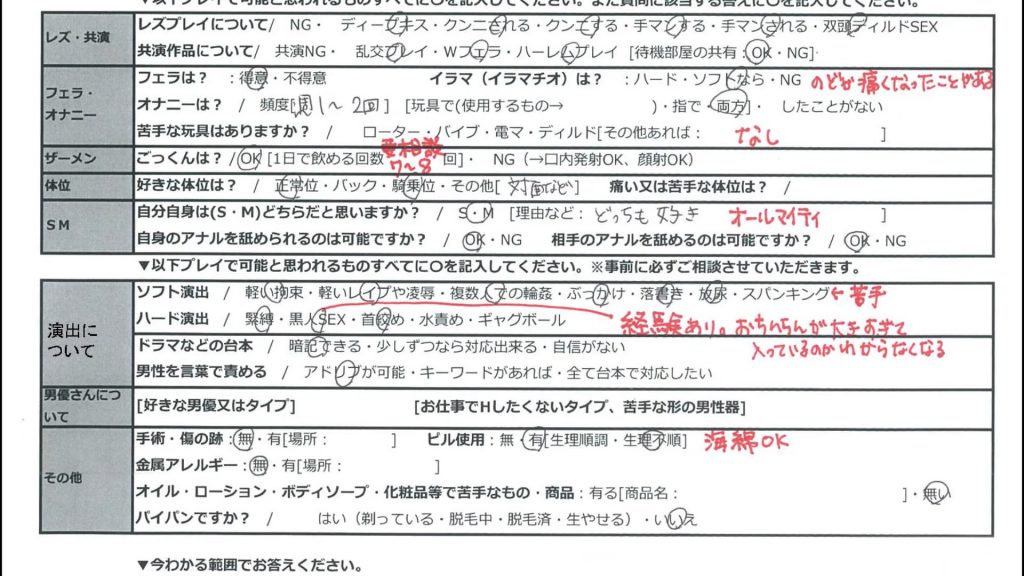 ▼以下プレイで可能と思われるものすべてに〇を記入してください。また質問に該当する答えに〇を記入してください。
レズ・共演
レズプレイについて/ NG・ ディープキス・クンニされる・クンニする・手マンする・手マンされる・双頭ディルドSEX
共演作品について/ 共演NG・ 乱交プレイ・Wフェラ・ハーレムプレイ [待機部屋の共有:OK・NG]
フェラ・オナニー
フェラは? :得意・不得意 イラマ(イラマチオ)は? :ハード・ソフトなら・NG のどが痛くなったことがある
オナニーは? / 頻度[週1〜2回] [玩具で(使用するもの→ )・指で・両方]・ したことがない
苦手な玩具はありますか? / ローター・バイブ・電マ・ディルド[その他あれば: なし ]
ザーメン
ごっくんは? /OK [1日で飲める回数 7〜8 回]・ NG (→口内発射OK、顔射OK)
体位
好きな体位は? / 正常位・バック・騎乗位・その他[ 対面など ] 痛い又は苦手な体位は? /
SM
自分自身は(S・M)どちらだと思いますか? / S・M [理由など: どっちも好き オールマイティ ]
自身のアナルを舐められるのは可能ですか? / OK・NG 相手のアナルを舐めるのは可能ですか? / OK・NG
▼以下プレイで可能と思われるものすべてに〇を記入してください。※事前に必ずご相談させていただきます。
演出について
ソフト演出 / 軽い拘束・軽いレイプや凌辱・複数人での輪姦・ぶっかけ・落書き・放尿・スパンキング ←苦手
ハード演出 / 緊縛・黒人SEX・首絞め・水責め・ギャグボール 経験あり。おちんちんが大きすぎて
入っているのかわからなくなる
ドラマなどの台本 / 暗記できる・少しずつなら対応出来る・自信がない
男性を言葉で責める / アドリブが可能・キーワードがあれば・全て台本で対応したい
男優さんについて
[好きな男優又はタイプ] [お仕事でHしたくないタイプ、苦手な形の男性器]
その他
手術・傷の跡:無・有[場所: ] ピル使用:無・有[生理順調・生理不順] 海綿OK
金属アレルギー:無・有[場所: ]
オイル・ローション・ボディソープ・化粧品等で苦手なもの・商品:有る[商品名: ]・無い
パイパンですか? / はい(剃っている・脱毛中・脱毛済・生やせる)・いいえ
▼今わかる範囲でお答えください。